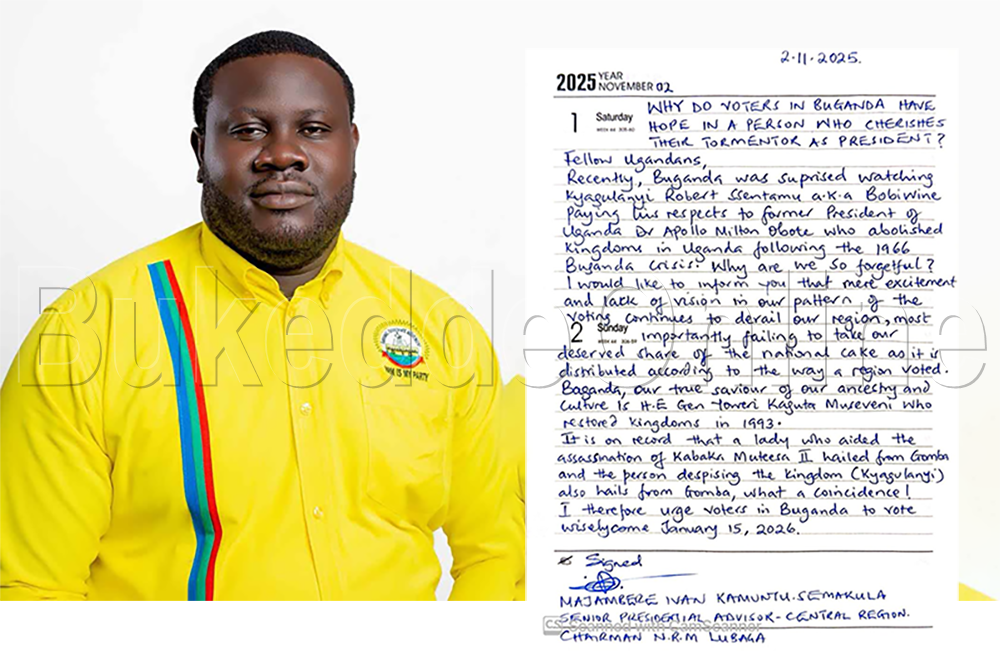 Bukedde Online
NRM IS MY PARTY
2.11.2025.
2025 YEAR
NOVEMBER 02
1 Saturday
WEEK 44 305-60
WHY DO VOTERS IN BUGANDA HAVE
HOPE IN A PERSON WHO CHERISHES
THEIR TORMENTOR AS PRESIDENT?
Fellow Ugandans,
Recently, Buganda was suprised watching
Kyagulanyi Robert Ssentamu a.k.a Bobiwine
Paying his respects to former President of
Uganda Dr Apollo Milton Obote who abolished
Kingdoms in Uganda following the 1966
Buganda crisis. Why are we so forgetful?
I would like to inform you that mere excitement
and lack of vision in our pattern of the
voting continues to derail our region, most
2 Sunday
WEEK 44 306-59
Importantly failing to take our
deserved share of the national cake as it is
distributed according to the way a region voted.
Baganda, our true saviour of our ancestry and
Culture is H.E Gen Yoweri Kaguta Museveni who
restored kingdoms in 1993.
It is on record that a lady who aided the
assassination of Kabaka Muteesa II hailed from Gomba
and the person despising the kingdom (Kyagulanyi)
also hails from Gomba, what a coincidence!
I therefore urge voters in Buganda to vote
wiselycome January 15, 2026.
Signed
MAJAMBERE IVAN KAMUNTU.SEMAKULA
SENIOR PRESIDENTIAL ADVISOR-CENTRAL REGION.
CS Scanned with CamScanner
CHAIRMAN N.R.M LUBAGA